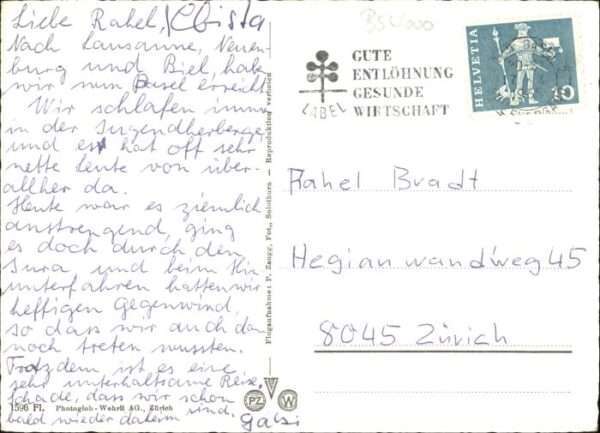 Liebe Rahel, / Christa
Nach Lausanne, Neuen-
burg und Biel, habe
wir nun Basel erreicht.
Wir schlafen immer
in der Jugendherberge
und es hat oft sehr
nette Leute von über-
allher da.
Heute war es ziemlich
anstrengend, ging
es doch durch den
Jura und beim Hin-
unterfahren hatten wir
heftigen Gegenwind,
so dass wir auch da
noch treten mussten.
Trotzdem ist es eine
sehr unterhaltsame Reise,
schade, dass wir schon
bald wieder daheim sind.
Gabi
1596 Fl. Photoglob-Wehrli AG., Zürich
Flugaufnahme: P. Zaugg, Fot., Solothurn - Reproduktion verboten
PZ W
GUTE
ENTLÖHNUNG
GESUNDE
WIRTSCHAFT
LABEL
HELVETIA
10
Rahel Bradt
Hegianwandweg 45
8045 Zürich